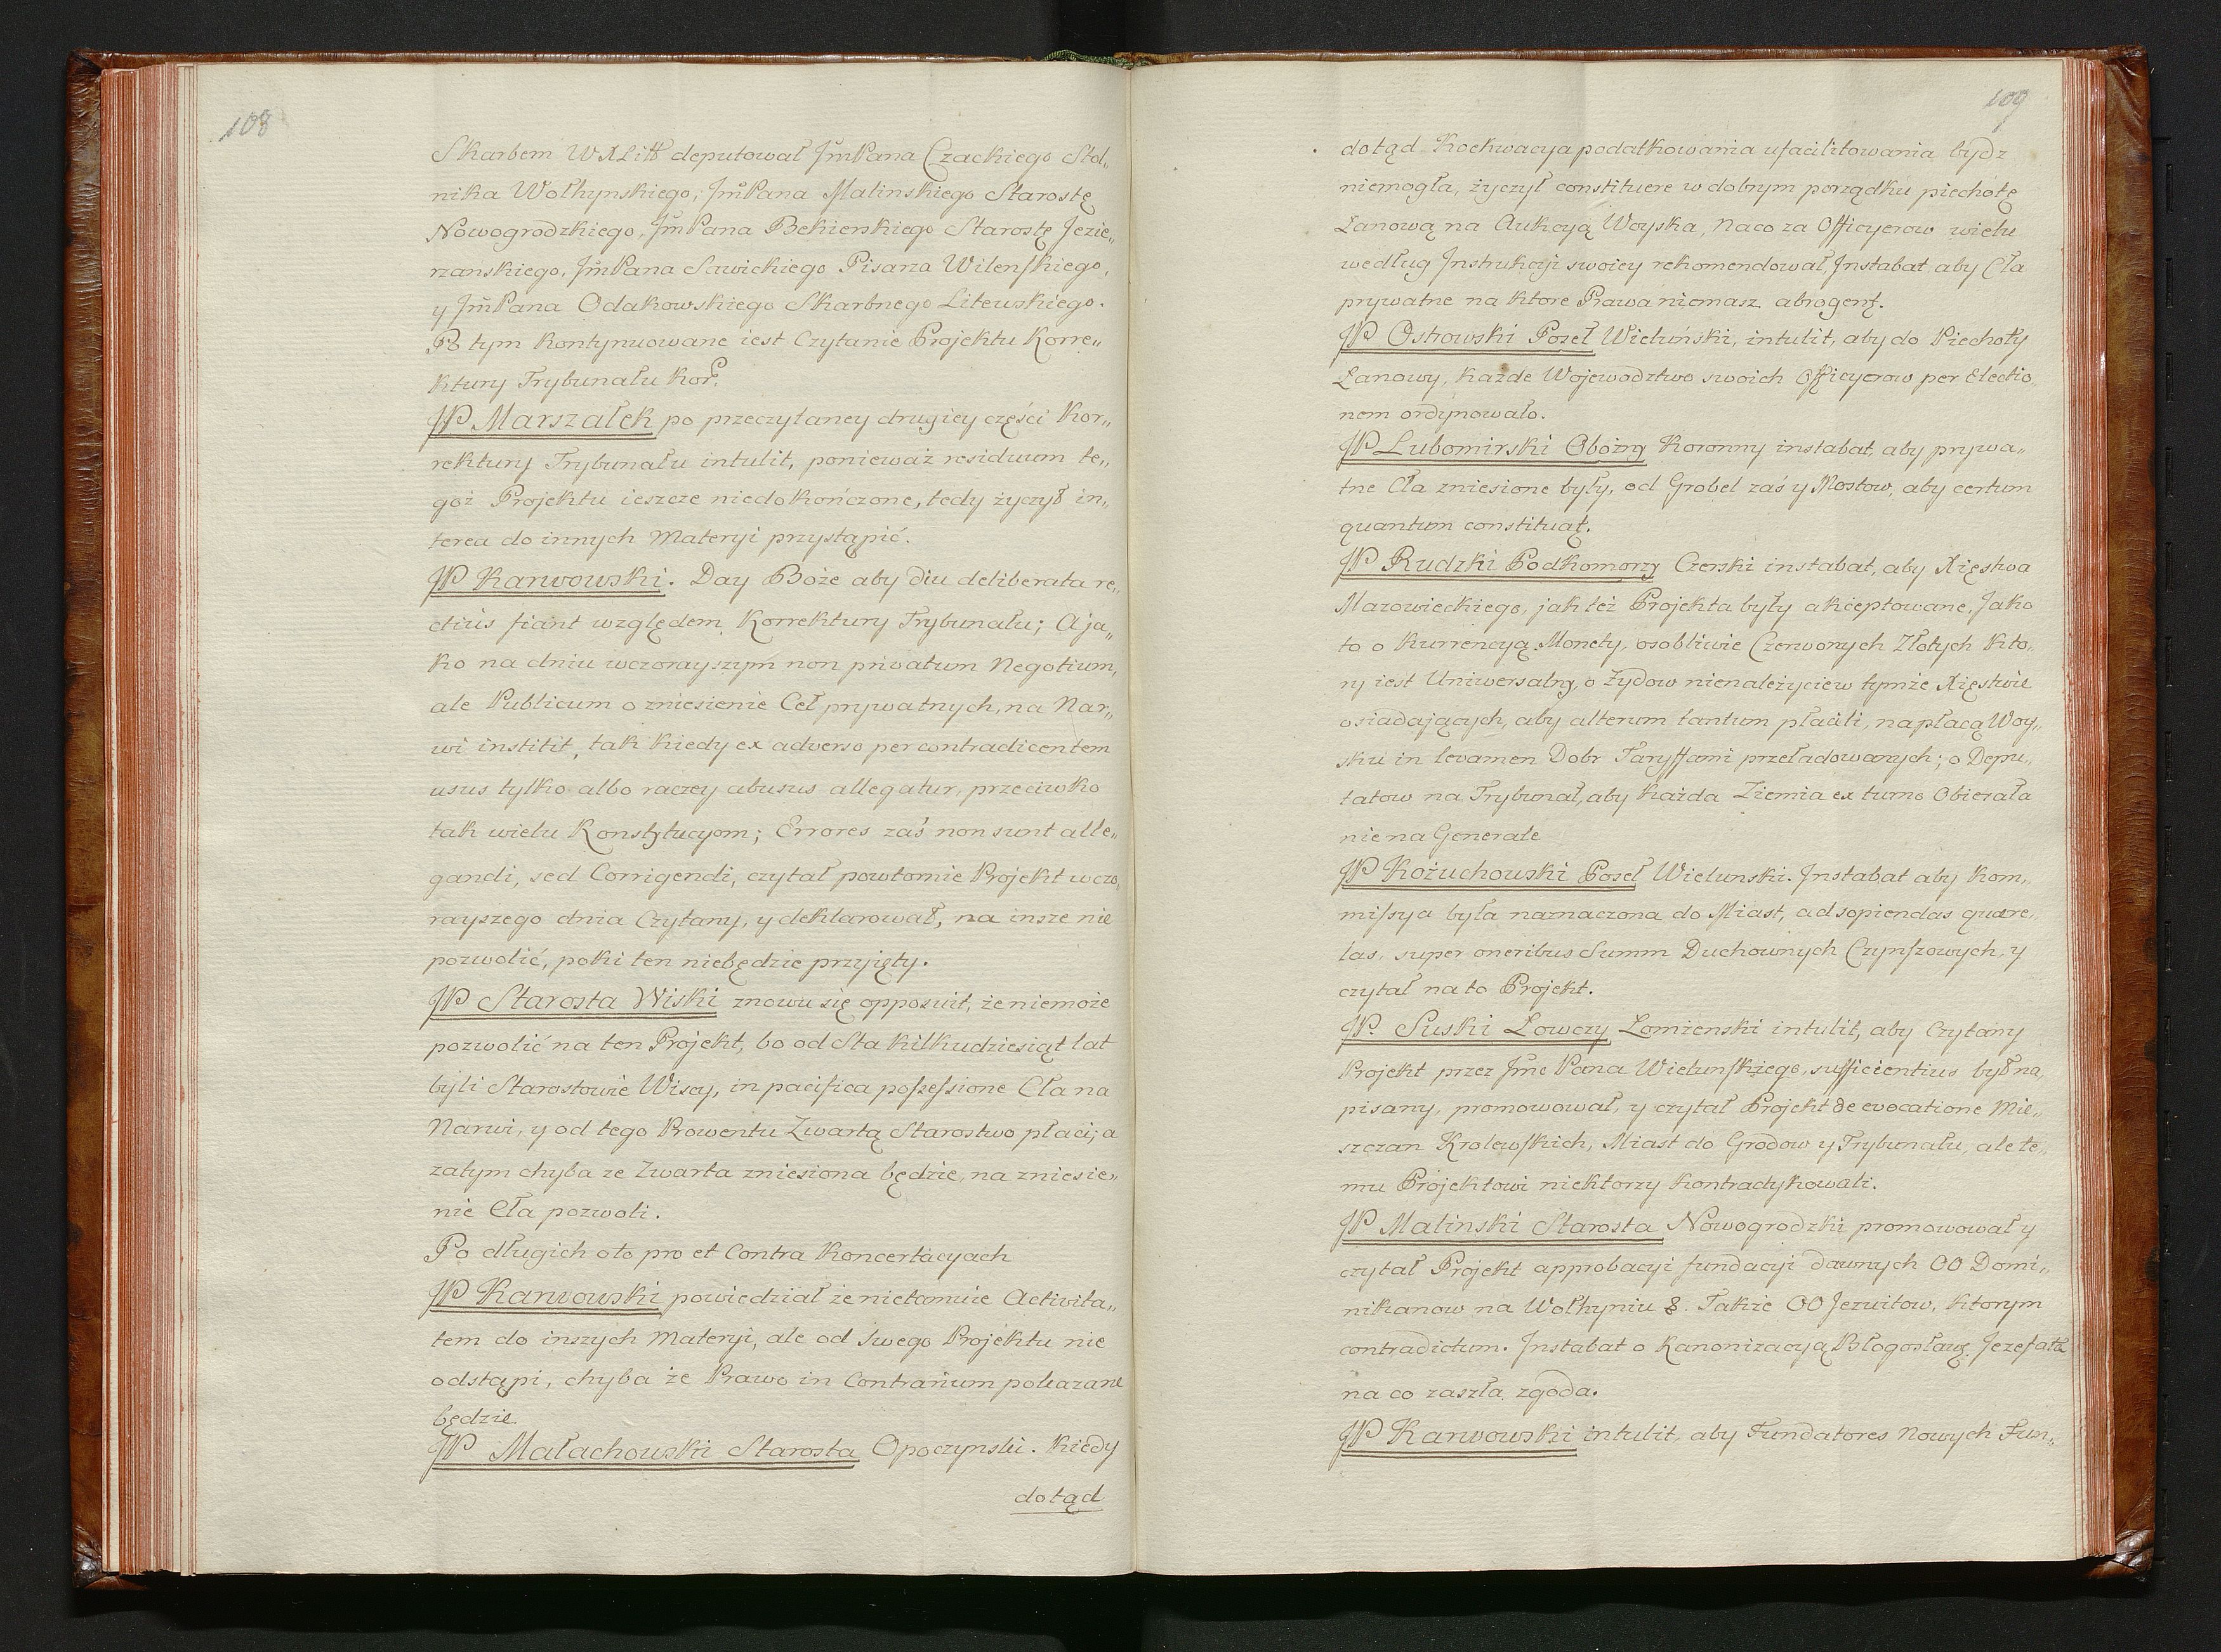 108
Skarbem WXLitt deputował JmPana Czackiego Stol„
nika Wołhynskiego, JmPana Malinskiego Starostę
Nowogrodzkiego, JmPana Bekierskiego Starostę Jezie„
rzanskiego, JmPana Sawickiego Pisarza Wilenskiego,
y JmPana Odakowskiego Skarbnego Litewskiego.
Po tym kontynuowane iest Czytanie Projektu Korre„
ktury Trybunału Kor.
JP Marszałek po przeczytaney drugiey części Kor„
rektury Trybunału intulit, ponieważ residuum te„
goż Projektu ieszcze niedokończone, tedy życzył in„
terea do innych Materyi przystąpić.
JP Karwowski. Day Boże aby diu deliberata re„
ctius fiant względem Korrektury Trybunału; A ja„
ko na dniu wczorayszym non privatum Negotium,
ale Publicum o zniesienie Ceł prywatnych, na Nar„
wi institit, tak kiedy ex adverso per contradicentem
usus tylko albo raczey abusus allegatur, przeciwko
tak wielu Konstytucyom; Errores zaś non sunt alle„
gandi, sed Corrigendi, czytał powtornie Projekt wczo„
rayszego dnia Czytany, y deklarował, na insze nie
pozwolić, poki ten niebędzie przyięty.
JP Starosta Wiski znowu się opposuit, że niemoże
pozwolić na ten Projekt, bo od Sta kilkudziesiąt lat
byli Starostowie Wiscy, in pacifica possessione Cła na
Narwi, y od tego Prowentu Zwartą Starostwo płaci; a
zatym chyba ze Zwarta zniesiona będzie, na zniesie„
nie Cła pozwoli.
Po długich oto pro et Contra Koncertacyach
JP Karwowski powiedział że nietamuie Activita„
tem do inszych Materyi, ale od swego Projektu nie
odstąpi, chyba że Prawo in Contrarium pokazane
będzie.
JP Małachowski Starosta Opoczynski. Kiedy
dotąd
109
dotąd Koekwacya podatkowania ufacilitowania bydz
niemogła, życzył constituere w dobrym porządku piechotę
Łanową na Aukcyą Woyska, Naco za Officyerow wielu
według Instrukcyi swoiey rekomendował, Instabat aby Cła
prywatne na ktore Prawa niemasz abrogent.
JP Ostrowski Poseł Wieluński, intulit, aby do Piechoty
Łanowy, każde Wojewodztwo swoich Officyerow per Electio„
nem ordynowało.
JP Lubomirski Obożny Koronny instabat, aby prywa„
tne Cła zniesione były, od Grobel zaś y Mostow, aby certum
quantum constituat.
JP Rudzki Podkomorzy Czerski instabat, aby Xięstwa
Mazowieckiego, jak też Projekta były akceptowane, Jako
to o Kurrencyą Monety, osobliwie Czerwonych Złotych kto„
ry iest Uniwersalny, o Żydow nienależyciew tymże Xięstwie
osiadających, aby alterum tantum płacili, na płacą Woy„
sku in levamen Dobr Taryffami przeładowanych; o Depu„
tatow na Trybunał, aby każda Ziemia ex turno Obierała
nie na Generale
JP Kożuchowski Poseł Wielunski. Instabat aby Kom„
missya była naznaczona do Miast, ad sopiendas quære„
las, super oneribus Summ Duchownych Czynszowych, y
czytał na to Projekt.
JP. Suski Łowczy Łomzienski intulit, aby Czytany
Projekt przez Jmc Pana Wielunskiego, sufficientius był na„
pisany, promowował, y czytał Projekt de evocatione Mie„
szczan Krolewskich, Miast do Grodow y Trybunału, ale te„
mu Projektowi niektorzy kontradykowali.
JP Malinski Starosta Nowogrodzki promowował y
czytał Projekt approbacyi fundacyi dawnych OO Domi„
nikanow na Wołhyniu &. Takze OO Jezuitow, ktorym
contradictum. Instabat o Kanonizacyą Błogosław. Jozefata
na co zaszła zgoda.
JP Karwowski intulit, aby Fundatores Nowych Fun„